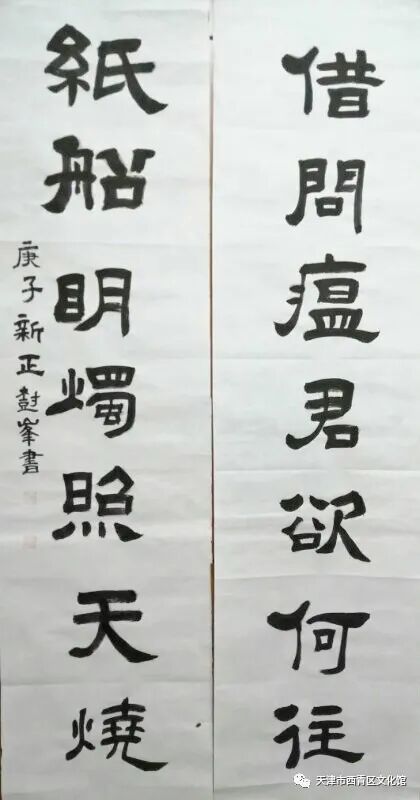 借問瘟君欲何往
紙船明燭照天燒
庚子新正鼓峯書
天津市西青区文化馆